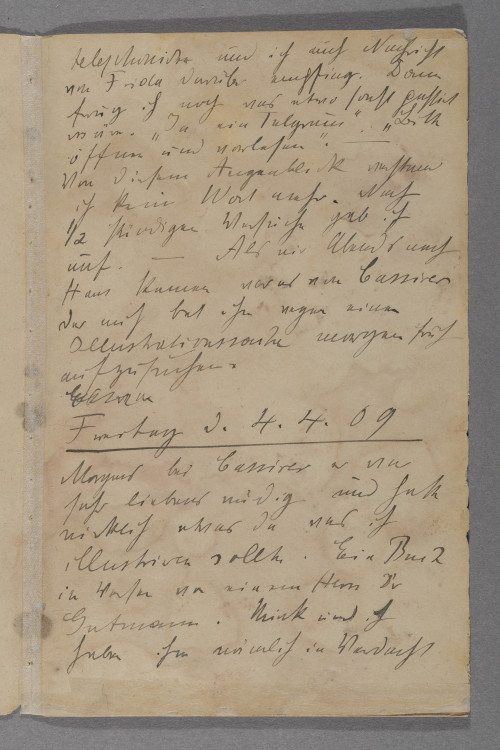 telephonierte und ich auch Nachricht
von Frida darüber empfing. Dann
frug ich noch was etwa sonst passiert
wäre. „Ja ein Telgramm". „Bitte
öffnen und vorlesen". —
Von diesem Augenblick verstand
ich kein Wort mehr. Nach
1/2 stündigen Versuche gab ich
auf. — Als wir Abends nach
Haus kamen war was von Cassirer
der mich bat ihn wegen einer
Illustrationssache morgen früh
aufzusuchen.
Freitag d. 4. 4. 09
Morgens bei Cassirer er war
sehr liebenswürdig und hatte
wirklich etwas da was ich
illustriren sollte. Ein Buch
in Versen von einem Herrn Dr
Gutmann. Mink und ich
haben ihn nämlich in Verdacht